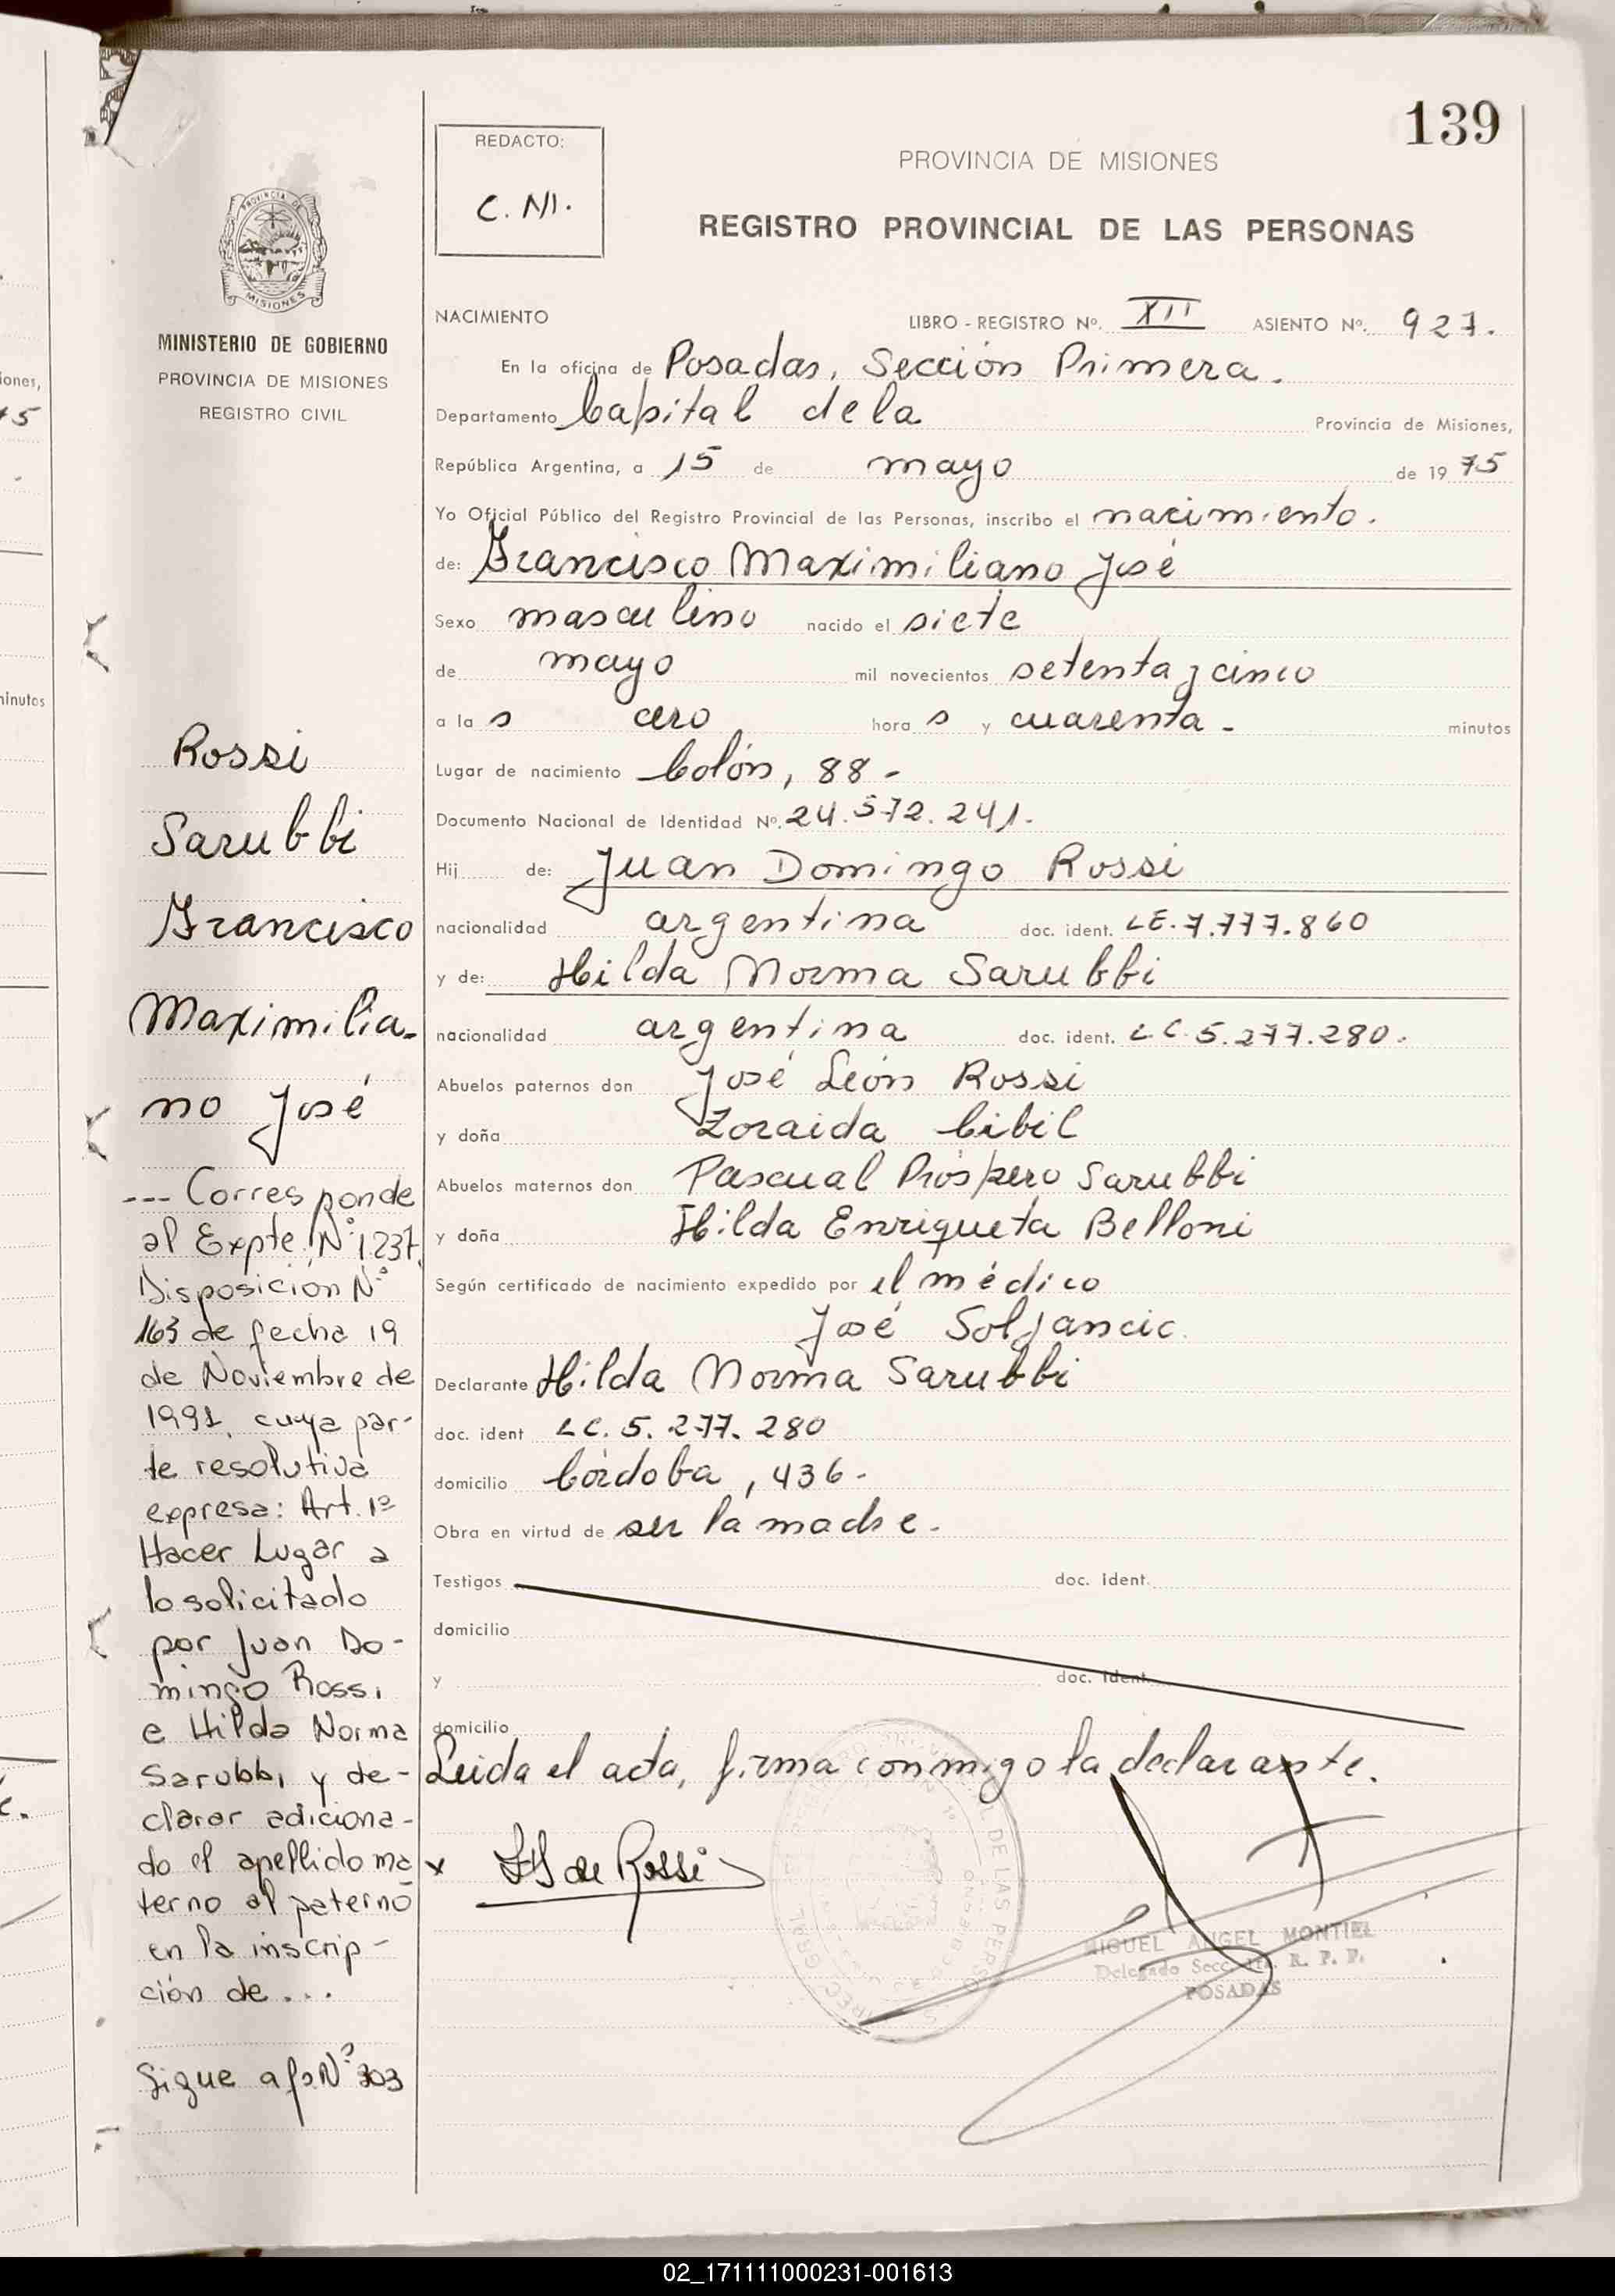 139
REDACTO:
C. M.
PROVINCIA DE MISIONES
REGISTRO PROVINCIAL DE LAS PERSONAS
MISIONES
MINISTERIO DE GOBIERNO
PROVINCIA DE MISIONES
REGISTRO CIVIL
NACIMIENTO LIBRO - REGISTRO Nº. XII ASIENTO Nº. 927.
En la oficina de Posadas, Sección Primera.
Departamento Capital de la Provincia de Misiones,
República Argentina, a 15 de mayo de 1975
Yo Oficial Público del Registro Provincial de las Personas, inscribo el nacimiento.
de: Francisco Maximiliano José
Sexo masculino nacido el siete
de mayo mil novecientos setenta y cinco
a la s cero hora s y cuarenta - minutos
Lugar de nacimiento Colón, 88 -
Documento Nacional de Identidad Nº. 24.572.241.
Hij de: Juan Domingo Rossi
nacionalidad argentina doc. ident. LE. 7.777.860
y de: Hilda Norma Sarubbi
nacionalidad argentina doc. ident. L C. 5.277.280.
Abuelos paternos don José León Rossi
y doña Zoraida Cibil
Abuelos maternos don Pascual Próspero Sarubbi
y doña Hilda Enriqueta Belloni
Según certificado de nacimiento expedido por el médico
José Soljancic.
Declarante Hilda Norma Sarubbi
doc. ident LC. 5. 277. 280
domicilio Córdoba, 436-
Obra en virtud de ser la madre.
Testigos doc. ident.
domicilio
y doc. ident.
domicilio
Leida el acta, firma conmigo la declarante.
x HS de Rossi
MIGUEL ANGEL MONTIEL
R. P. P.
POSADAS
Rossi
Sarubbi
Francisco
Maximilia-
no José
--- Corresponde
al Expte. Nº 1237
Disposición Nº
163 de fecha 19
de Noviembre de
1991, cuya par-
te resolutiva
expresa: Art. 1º
Hacer Lugar a
lo solicitado
por Juan Do-
mingo Rossi
e Hilda Norma
Sarubbi y de-
clarar adiciona-
do el apellido ma
terno al paterno
en la inscrip-
ción de...
Sigue a fs. Nº 303
02_171111000231-001613